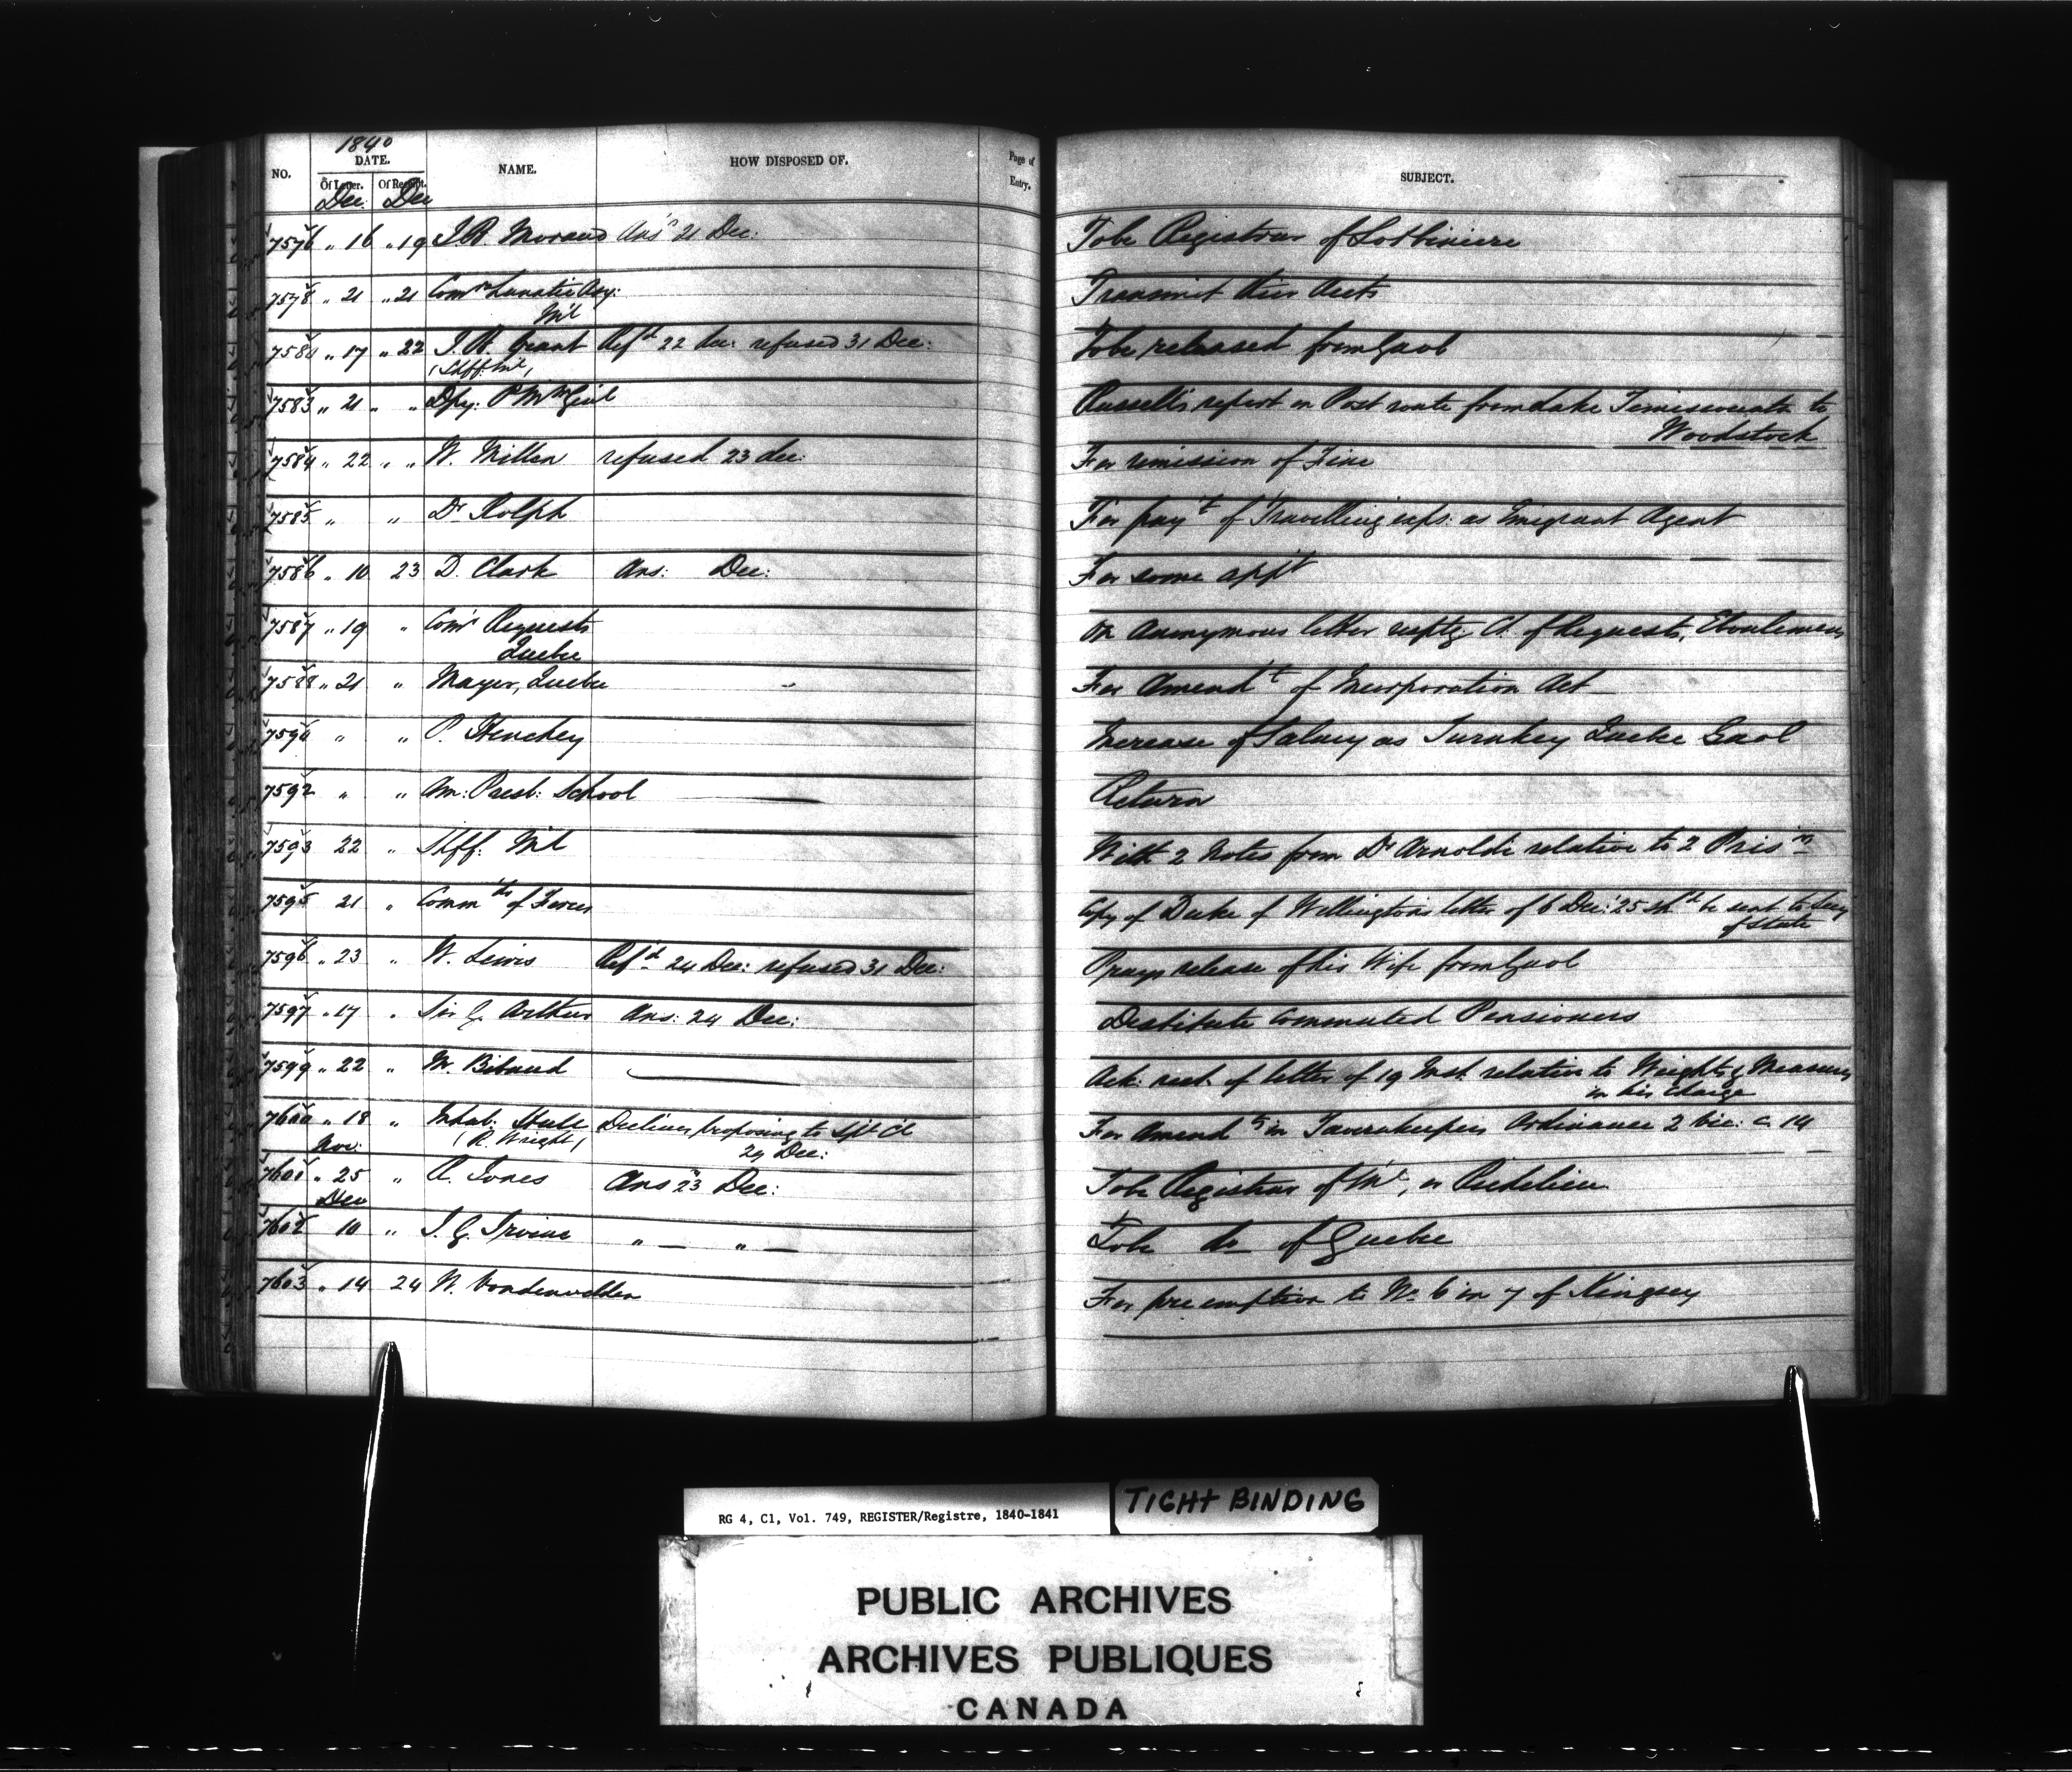 1840
NO. DATE. NAME. HOW DISPOSED OF. Page of Entry. SUBJECT.
Of Letter. Of Receipt.
Dec: Dec
7576 " 16 " 19 J.R. Morand Ans'd 21 Dec: To be Registrar of Lotbiniere
7578 " 21 " 21 Comrs Lunatic Asy: Transmit their Accts
Ml
758 " 17 " 22 J.R. Grant Refd 22 Dec: refused 31 Dec: To be released from Gaol
(Shff: Ml)
7583 " 21 " " Dpy: P M Genl Russell's report on Post route from Lake Temiscouata to
Woodstock
7584 " 22 " " W. Miller refused 23 dec: For remission of Fine
7585 " " Dr Rolph For payt of Travelling exps: as Emigrant Agent
7586 " 10 23 D. Clark Ans: Dec: For some appt
7587 " 19 " Comrs Requests On Anonymous letter resptg Ct. of Requests, Eboulemens
Quebec
7588 " 21 " Mayor, Quebec For Amendt of Incorporation Act
759 " " P. Henchey Increase of Salary as Turnkey Quebec Gaol
7592 " " Am: Presb: School Return
7593 22 " Shff: Ml With 2 Notes from Dr Arnoldi relative to 2 Prisrs
7595 21 " Commdr of Forces Copy of Duke of Wellington's letter of 6 Dec: 25 shd be sent to Secy
of State
7596 " 23 " W. Lewis Refd 24 Dec: refused 31 Dec: Prays release of his Wife from Gaol
7597 " 17 " Sir G. Arthur Ans: 24 Dec: Destitute Commuted Pensioners
7599 " 22 " M. Bibaud Ack: rect. of letter of 19 Inst. relative to Weights & Measures
in his Charge
7600 " 18 " Inhab: Hull Declines proposing to Spl Cl For Amendts in Tavernkeepers Ordinance 2 Vic: c. 14
(R. Wright) 24 Dec:
Nov:
7601 " 25 " R. Jones Ans 23 Dec: To be Registrar of Ml, or Richelieu
Dec
7602 10 " J.G. Irvine " — " — To be do of Quebec
7603 " 14 24 W. Vondenvelden For pre emption to No. 6 in 7 of Kingsey
RG 4, C1, Vol. 749, REGISTER/Registre, 1840-1841
TIGHT BINDING
PUBLIC ARCHIVES
ARCHIVES PUBLIQUES
CANADA